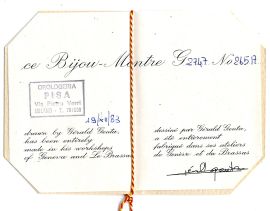 ce Bijou-Montre G2747 No 865A
OROLOGERIA
PISA
Via Pietro Verri
19/XII/83
drawn by Gérald Genta,
has been entirely
made in his workshops
of Geneva and Le Brassus
dessiné par Gérald Genta,
a été entièrement
fabriqué dans ses ateliers
de Genève et du Brassus